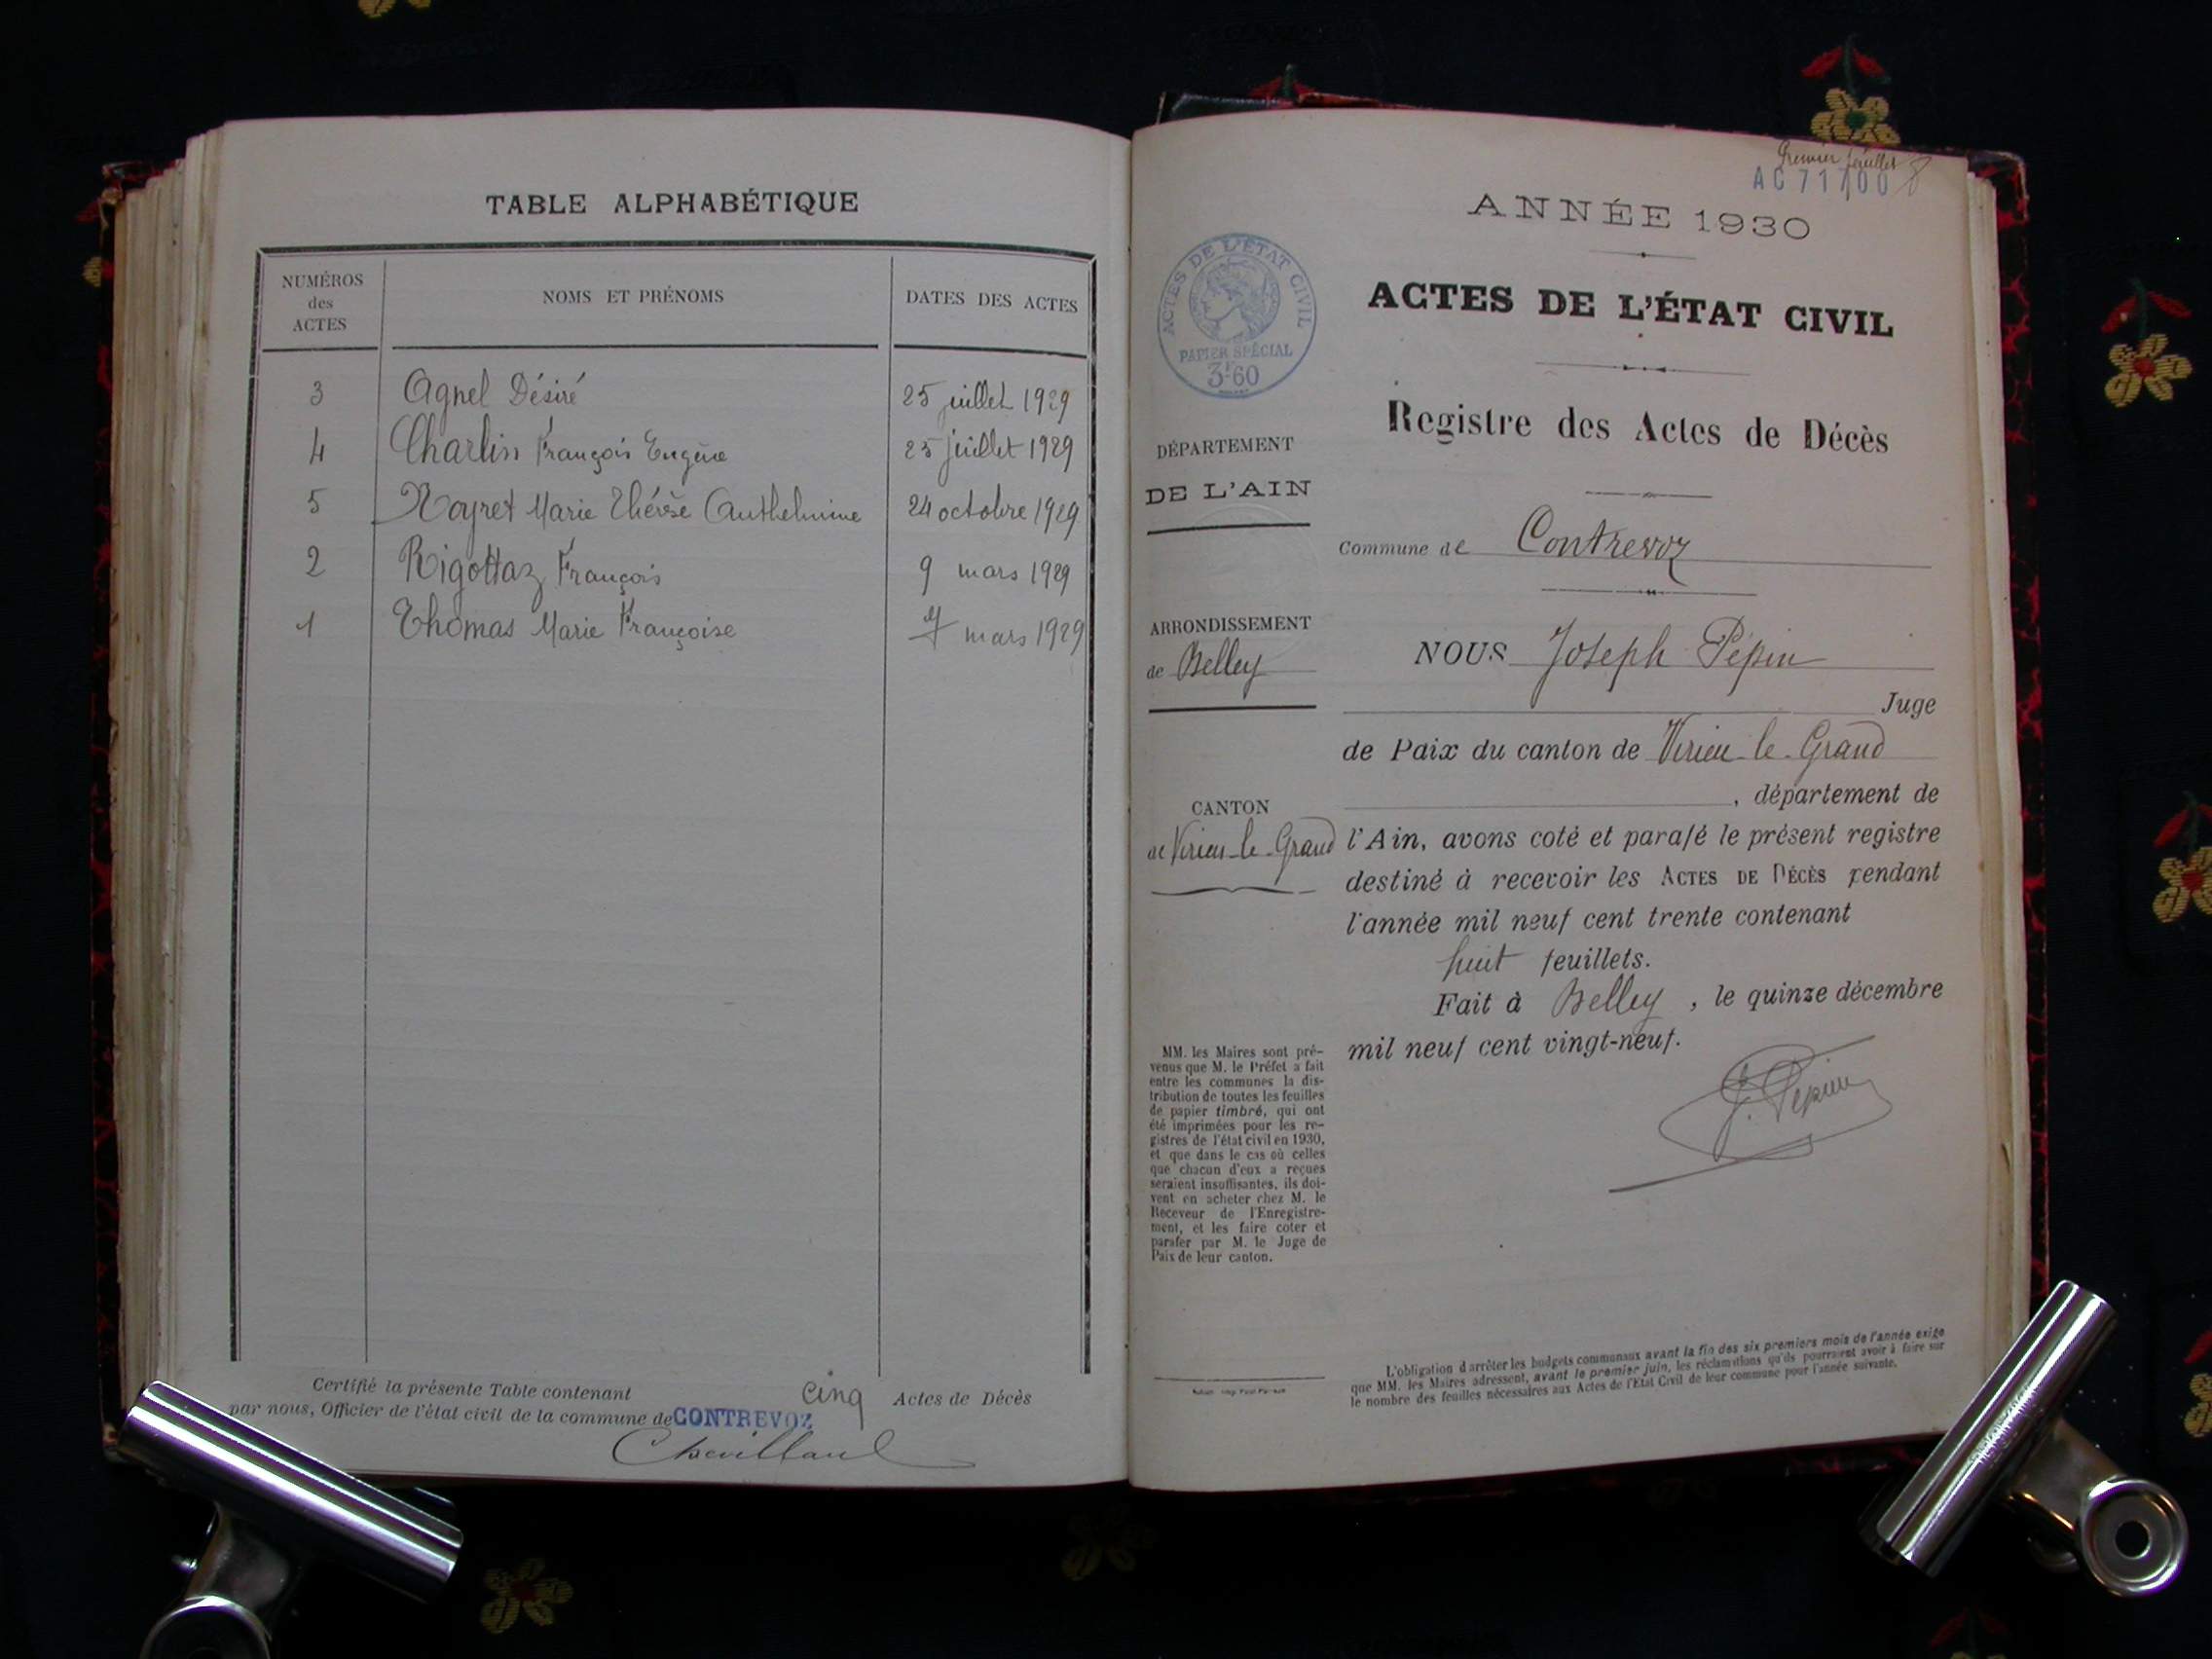 TABLE ALPHABÉTIQUE
NUMÉROS des ACTES NOMS ET PRÉNOMS DATES DES ACTES
3 Agnel Désiré 25 juillet 1929
4 Charlin François Eugène 25 juillet 1929
5 Noyret Marie Thérèse Anthelmine 24 octobre 1929
2 Rigottaz François 9 mars 1929
1 Thomas Marie Françoise mars 1929
Certifié la présente Table contenant cinq Actes de Décès
par nous, Officier de l'état civil de la commune de CONTREVOZ
Premier feuillet
AC 71700
ANNÉE 1930
ACTES DE L'ÉTAT CIVIL
PAPIER SPÉCIAL
3F60
ACTES DE L'ÉTAT CIVIL
Registre des Actes de Décès
DÉPARTEMENT
DE L'AIN
Commune de Contrevoz
ARRONDISSEMENT
de Belley
NOUS Joseph Pépin
Juge
de Paix du canton de Virieu-le-Grand
, département de
CANTON
de Virieu-le-Grand
l'Ain, avons coté et parafé le présent registre
destiné à recevoir les ACTES DE DÉCÈS pendant
l'année mil neuf cent trente contenant
huit feuillets.
Fait à Belley, le quinze décembre
mil neuf cent vingt-neuf.
J. Pépin
MM. les Maires sont pré-
venus que M. le Préfet a fait
entre les communes la dis-
tribution de toutes les feuilles
de papier timbré, qui ont
été imprimées pour les re-
gistres de l'état civil en 1930,
et que dans le cas où celles
que chacun d'eux a reçues
seraient insuffisantes, ils doi-
vent en acheter chez M. le
Receveur de l'Enregistre-
ment, et les faire coter et
parafer par M. le Juge de
Paix de leur canton.
L'obligation d'arrêter les budgets communaux avant la fin des six premiers mois de l'année exige
que MM. les Maires adressent, avant le premier juin, les réclamations qu'ils pourraient avoir à faire sur
le nombre des feuilles nécessaires aux Actes de l'Etat Civil de leur commune pour l'année suivante.